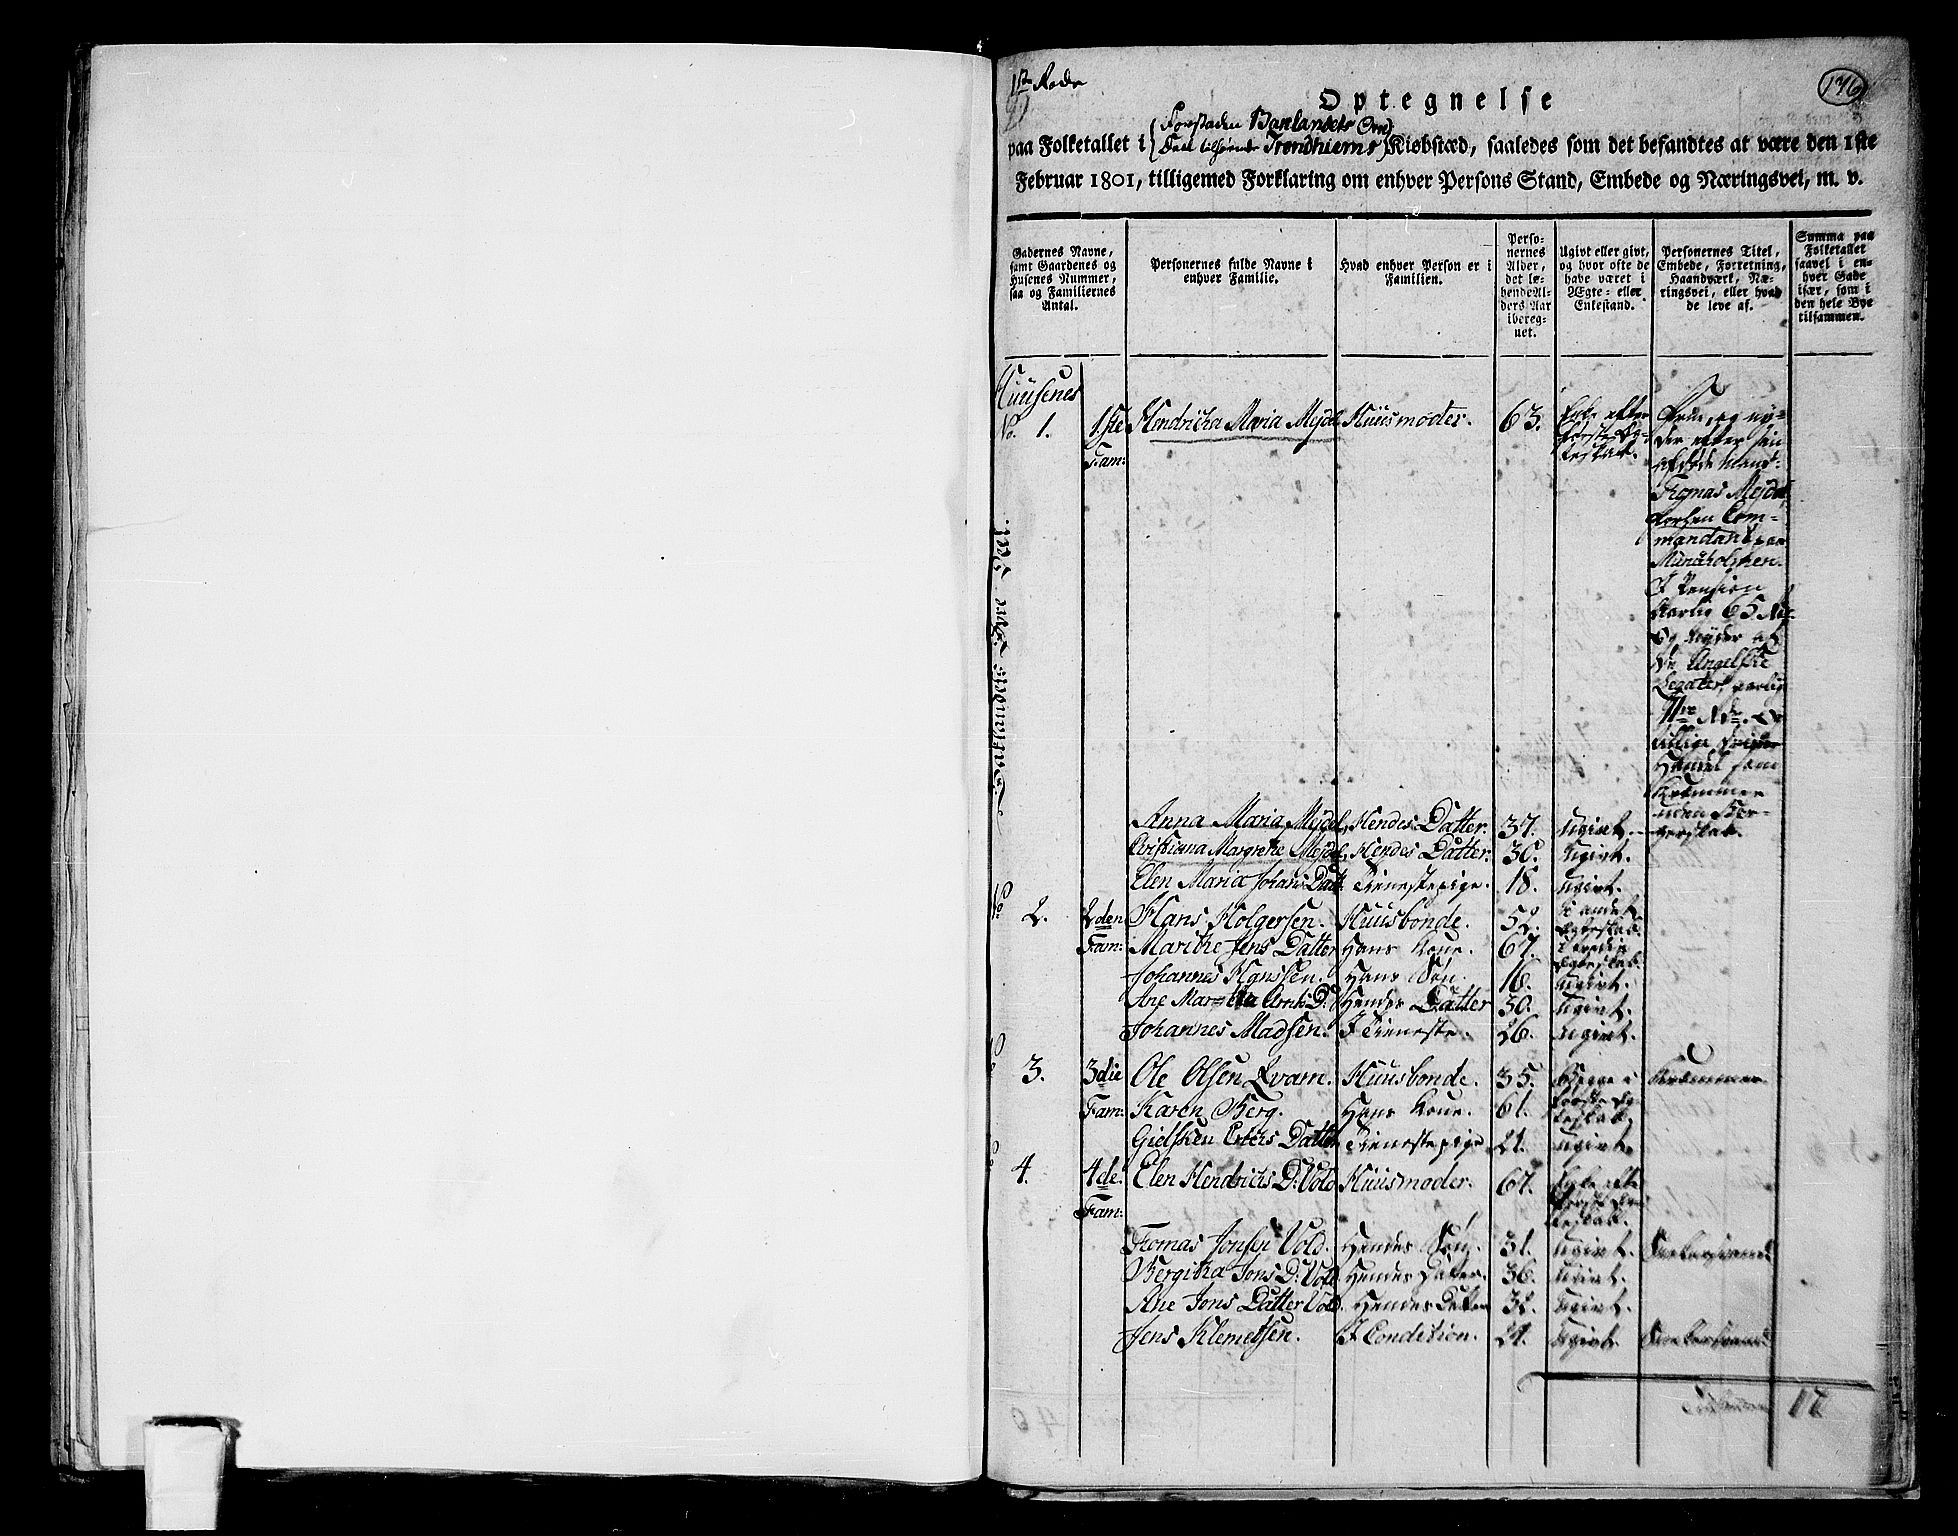 1ste Rode
176
Optegnelse
Forstaden Baklandet
paa Folketallet i Trondhiems Kiøbstæd, saaledes som det befandtes at være den 1ste
Februar 1801, tilligemed Forklaring om enhver Persons Stand, Embede og Næringsvei, m. v.
Gadernes Navne, samt Gaardenes og Husenes Nummer, saa og Familiernes Antal.
Personernes fulde Navne i enhver Familie.
Hvad enhver Person er i Familien.
Personernes Alder, det løbende Alders Aar iberegnet.
Ugivt eller givt, og hvor ofte de have været i Ægte- eller Enkestand.
Personernes Titel, Embede, Forretning, Haandværk, Næringsvei, eller hvad de leve af.
Summa paa Folketallet saavel i enhver Gade især, som i den hele Bye tilsammen.
Huusenes
No. 1. 1ste Fam: Hendricha Maria Mejdel Huusmoder. 63. Enke efter første Egteskab.
afdøde Mand
Tromas Mejdel
forhen Com-
mandant paa
Munkholmen.
I Pension
aarlig 65 Rd.
og nyder af
de Angelske
Legater, aarlig
Handel som
Kræmmer
uden Bor-
gerskab.
Anna Maria Mejdel, Hendes Datter. 37. Ugivt.
Cristiana Margrethe Mejdel, Hendes Datter. 30. Ugivt.
Elen Maria Johans Datt. Tienestepige. 18. Ugivt.
No. 2. 2den Fam: Hans Holgersen. Huusbonde. 52. I andet Egteskab.
Marithe Jens Datter Hans Kone. 67. i tredie Egteskab.
Johannes Hanssen. Hans Søn. 16. Ugivt.
Ane Margretha Arnts D: Hendes Datter 30. Ugivt.
Johannes Madsen. I Tieneste. 26. Ugivt.
No. 3. 3die Fam: Ole Olsen Qvam. Huusbonde. 35. Begge i første Egteskab. Kræmmer
Karen Berg. Hans Kone. 61.
Gielsken Datter Tienestepige 21. Ugivt.
No. 4. 4de Fam: Elen Hendrichs D: Vold Huusmoder. 67. Enke efter første Egteskab.
Tromas Jonsen Vold. Hendes Søn. 31. Ugivt.
Bergitha Jons D: Vold. Hendes Datter. 36. Ugivt.
Ane Jons Datter Vold. Hendes Datter Ugivt.
Jens Klemetsen. I Condition. 21. Ugivt
17